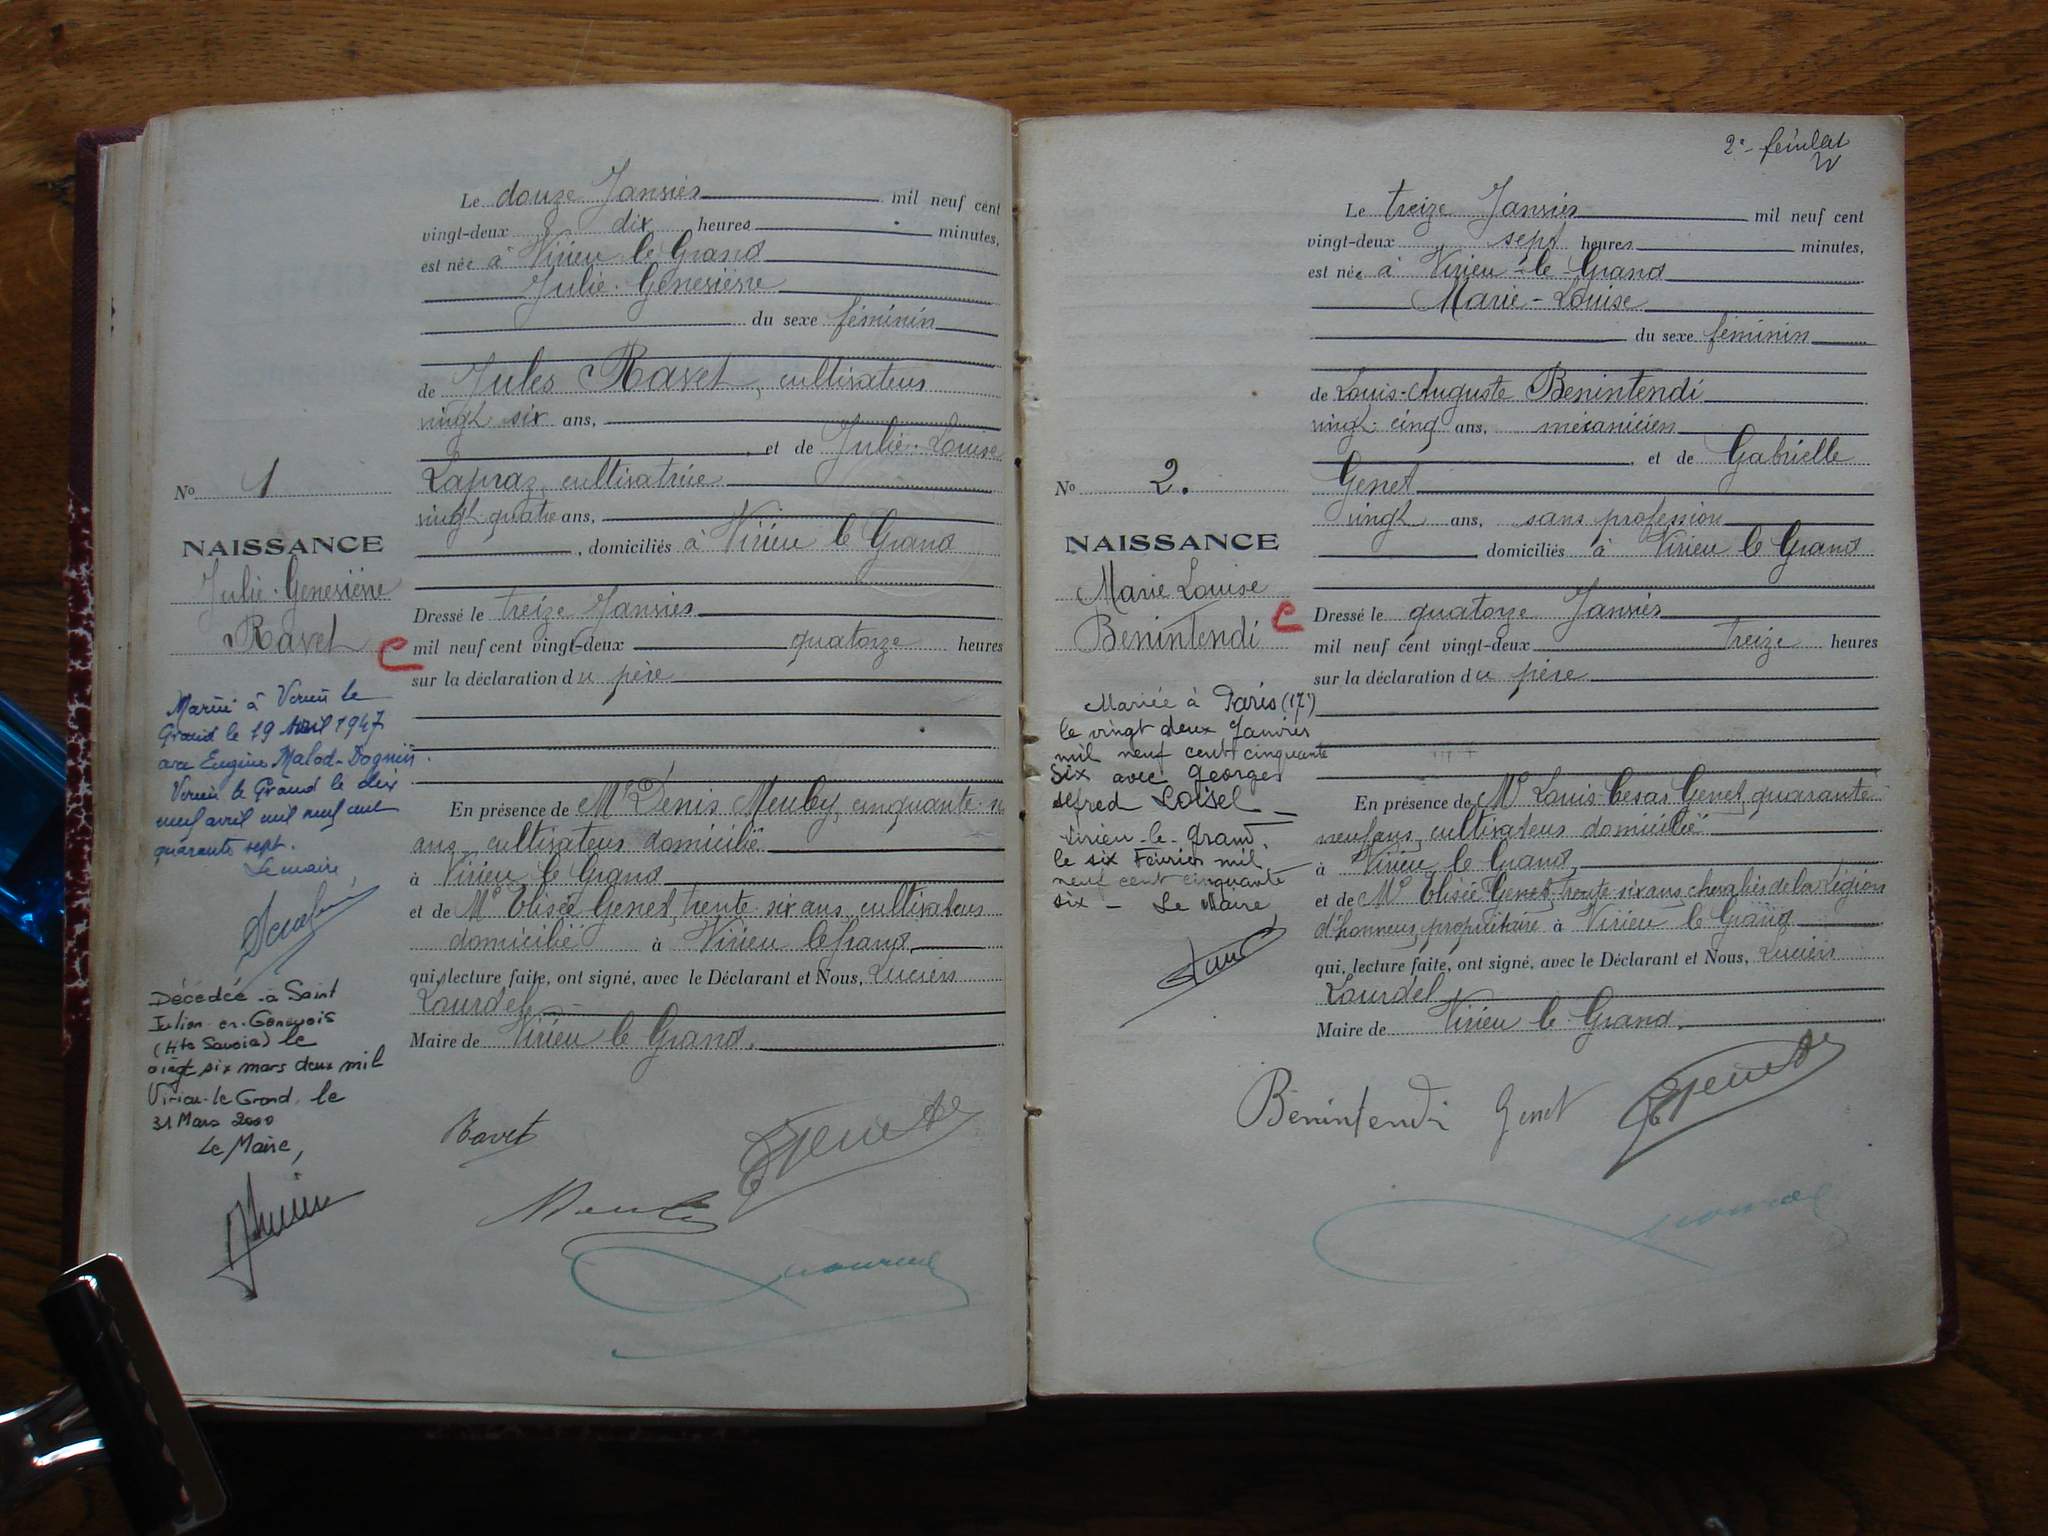 Le douze Janvier mil neuf cent
vingt-deux dix heures minutes,
est née à Virieu le Grand
Julie-Geneviève
du sexe féminin
de Jules Ravet, cultivateur
vingt six ans,
, et de Julie-Louise
Lapraz, cultivatrice
vingt quatre ans,
, domiciliés à Virieu le Grand
Dressé le treize Janvier
mil neuf cent vingt-deux quatorze heures
sur la déclaration du père
En présence de Mr Denis Meuley, cinquante
ans, cultivateur domicilié
à Virieu le Grand
et de Mr Elisée Genet, trente-six ans, cultivateur
domicilié à Virieu le Grand
qui, lecture faite, ont signé, avec le Déclarant et Nous, Lucien
Lourdel
Maire de Virieu le Grand.
Ravet
No 1
NAISSANCE
Julie-Geneviève
Ravet
C
Mariée à Virieu le
Grand le 19 Avril 1947
avec Eugène Malod-Dognin
Virieu le Grand le dix
neuf avril mil neuf cent
quarante sept.
Le maire,
Décédée à Saint
Julien-en-Genevois
(Hte Savoie) le
vingt six mars deux mil
Virieu-le-Grand, le
31 Mars 2000
Le Maire,
2e feuillet
Le treize Janvier mil neuf cent
vingt-deux sept heures minutes,
est née à Virieu-le-Grand
Marie-Louise
du sexe féminin
de Louis-Auguste Benintendi
vingt-cinq ans, mécanicien
, et de Gabrielle
Genet
vingt ans, sans profession
domiciliés à Virieu le Grand
Dressé le quatorze Janvier
mil neuf cent vingt-deux treize heures
sur la déclaration du père
En présence de Mr Louis-César Genet, quarante-
neuf ans, cultivateur domicilié
à Virieu le Grand,
et de Mr Elisée Genet, trente-six ans, chevalier de la légion
d'honneur, propriétaire à Virieu le Grand
qui, lecture faite, ont signé, avec le Déclarant et Nous, Lucien
Lourdel
Maire de Virieu le Grand.
Benintendi Genet
No 2.
NAISSANCE
Marie Louise
Benintendi
C
Mariée à Paris (17e)
le vingt deux Janvier
mil neuf cent cinquante
six avec Georges
Alfred Loisel
Virieu-le-Grand,
le six Février mil
neuf cent cinquante
six - Le Maire